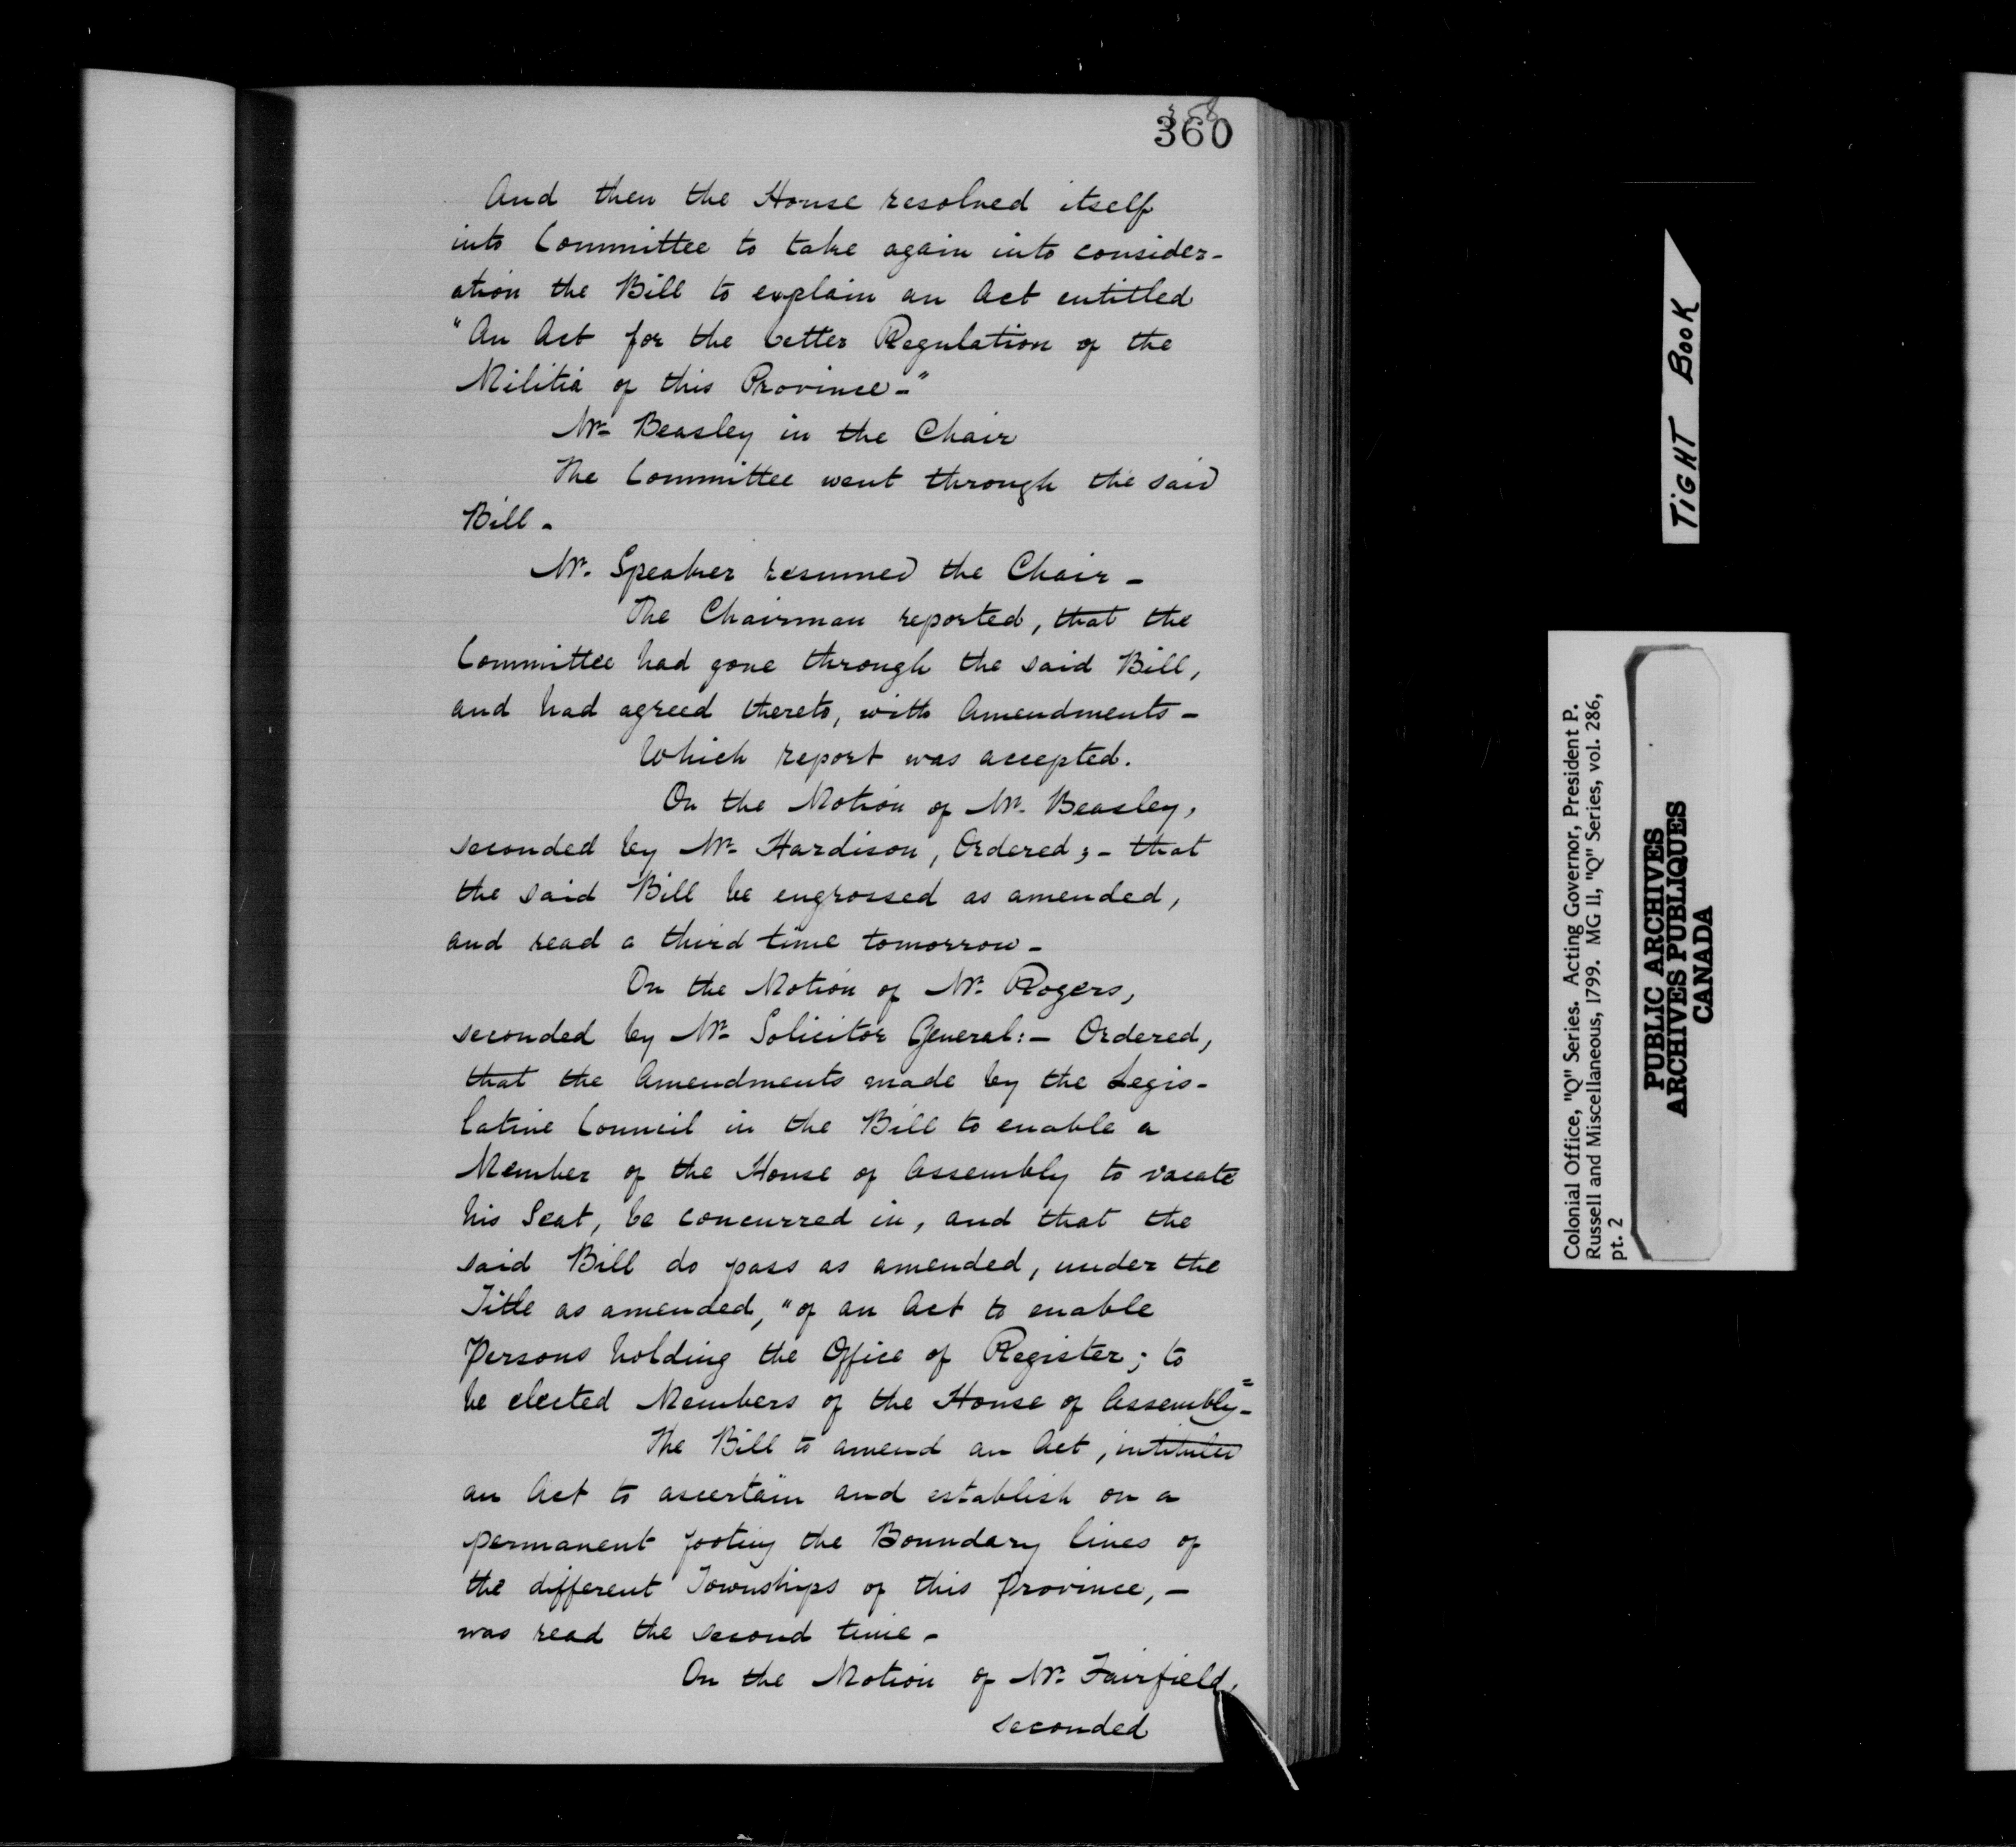 358
360
And then the House resolved itself
into Committee to take again into consider-
ation the Bill to explain an Act entitled
"An Act for the better Regulation of the
Militia of this Province-"
Mr. Beasley in the Chair
The Committee went through the said
Bill-
Mr. Speaker resumed the Chair-
The Chairman reported, that the
Committee had gone through the said Bill,
and had agreed thereto, with Amendments-
Which report was accepted.
On the Motion of Mr. Beasley,
seconded by Mr. Hardison, Ordered;- that
the said Bill be engrossed as amended,
and read a third time tomorrow-
On the Motion of Mr. Rogers,
seconded by Mr. Solicitor General:- Ordered,
that the Amendments made by the Legis-
lative Council in the Bill to enable a
Member of the House of Assembly to vacate
his Seat, be concurred in, and that the
said Bill do pass as amended, under the
Title as amended, "of an Act to enable
Persons holding the Office of Register; to
be elected Members of the House of Assembly"-
The Bill to amend an Act, intituled
an Act to ascertain and establish on a
permanent footing the Boundary lines of
the different Townships of this Province,-
was read the second time-
On the Motion of Mr. Fairfield,
seconded
TIGHT BOOK
Colonial Office, "Q" Series. Acting Governor, President P.
Russell and Miscellaneous, 1799. MG 11, "Q" Series, vol. 286,
pt. 2
PUBLIC ARCHIVES
ARCHIVES PUBLIQUES
CANADA